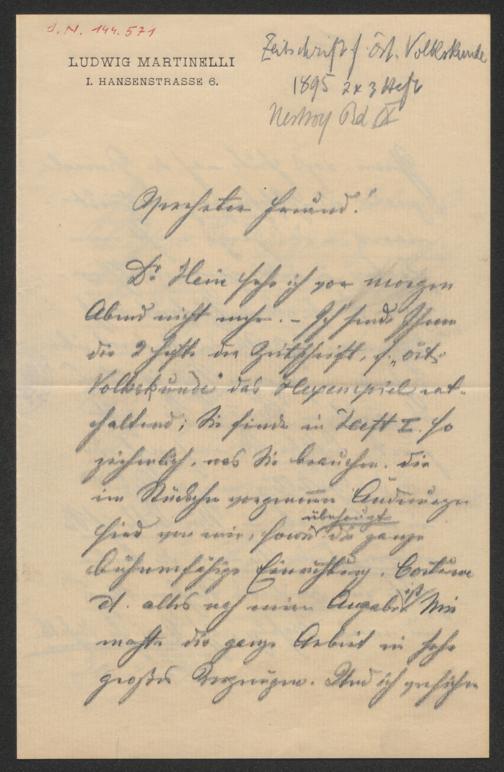 J. N. 144.571
LUDWIG MARTINELLI
I. HANSENSTRASSE 6.
Zeitschrift f. öst. Volkskunde
1895 2 x 3 Heft
Nestroy Bd IX
Verehrter Freund!
Dr. Hein sehe ich vor morgen
Abend nicht mehr. – Ich sende Ihnen
die 2 Hefte der Zeitschrift, f. „öst.
Volkskunde" das Hexenspiel ent-
haltend; Sie finden in Heft I. so
ziemlich, was Sie brauchen. die
im Stücke vorgenommenen Änderungen
sind von mir, sowie überhaupt die ganze
bühnenfähige Einrichtung. Costume
et. alles nach meiner Angabe ist. Mir
machte die ganze Arbeit ein sehr
großes Vergnügen. Und ich